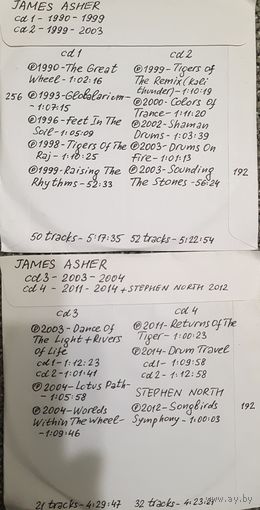 JAMES ASHER
cd 1 - 1990 - 1999
cd 2 - 1999 - 2003
cd 1
℗1990-The Great
Wheel - 1:02:16
256 ℗1993-Globalarium-
- 1:07:15
℗1996-Feet In The
Soil - 1:05:09
℗1998-Tigers Of The
Raj - 1:10:25
℗1999-Raising The
Rhythms - 52:33
50 tracks - 5:17:35
cd 2
℗1999-Tigers of
The Remix (kali
thunder) - 1:10:19
℗2000-Colors Of
Trance - 1:11:20
℗2002-Shaman
Drums - 1:03:39
℗2003-Drums On
Fire - 1:01:13
℗2003-Sounding
The Stones - 56:24
192
52 tracks - 5:22:54
JAMES ASHER
cd 3 - 2003 - 2004
cd 4 - 2011 - 2014 + STEPHEN NORTH 2012
cd 3
℗2003-Dance Of
The Light + Rivers
Of Life
cd 1 - 1:12:23
cd 2 - 1:01:41
℗2004-Lotus Path-
- 1:05:58
℗2004-Worlds
Within The Wheel-
- 1:09:46
21 tracks - 4:29:47
cd 4
℗2011-Returns Of The
Tiger - 1:00:23
℗2014-Drum Travel
cd 1 - 1:09:58
cd 2 - 1:12:58
STEPHEN NORTH
℗2012-Songbirds
Symphony - 1:00:03
192
32 tracks - 4:23:24
www.ay.by